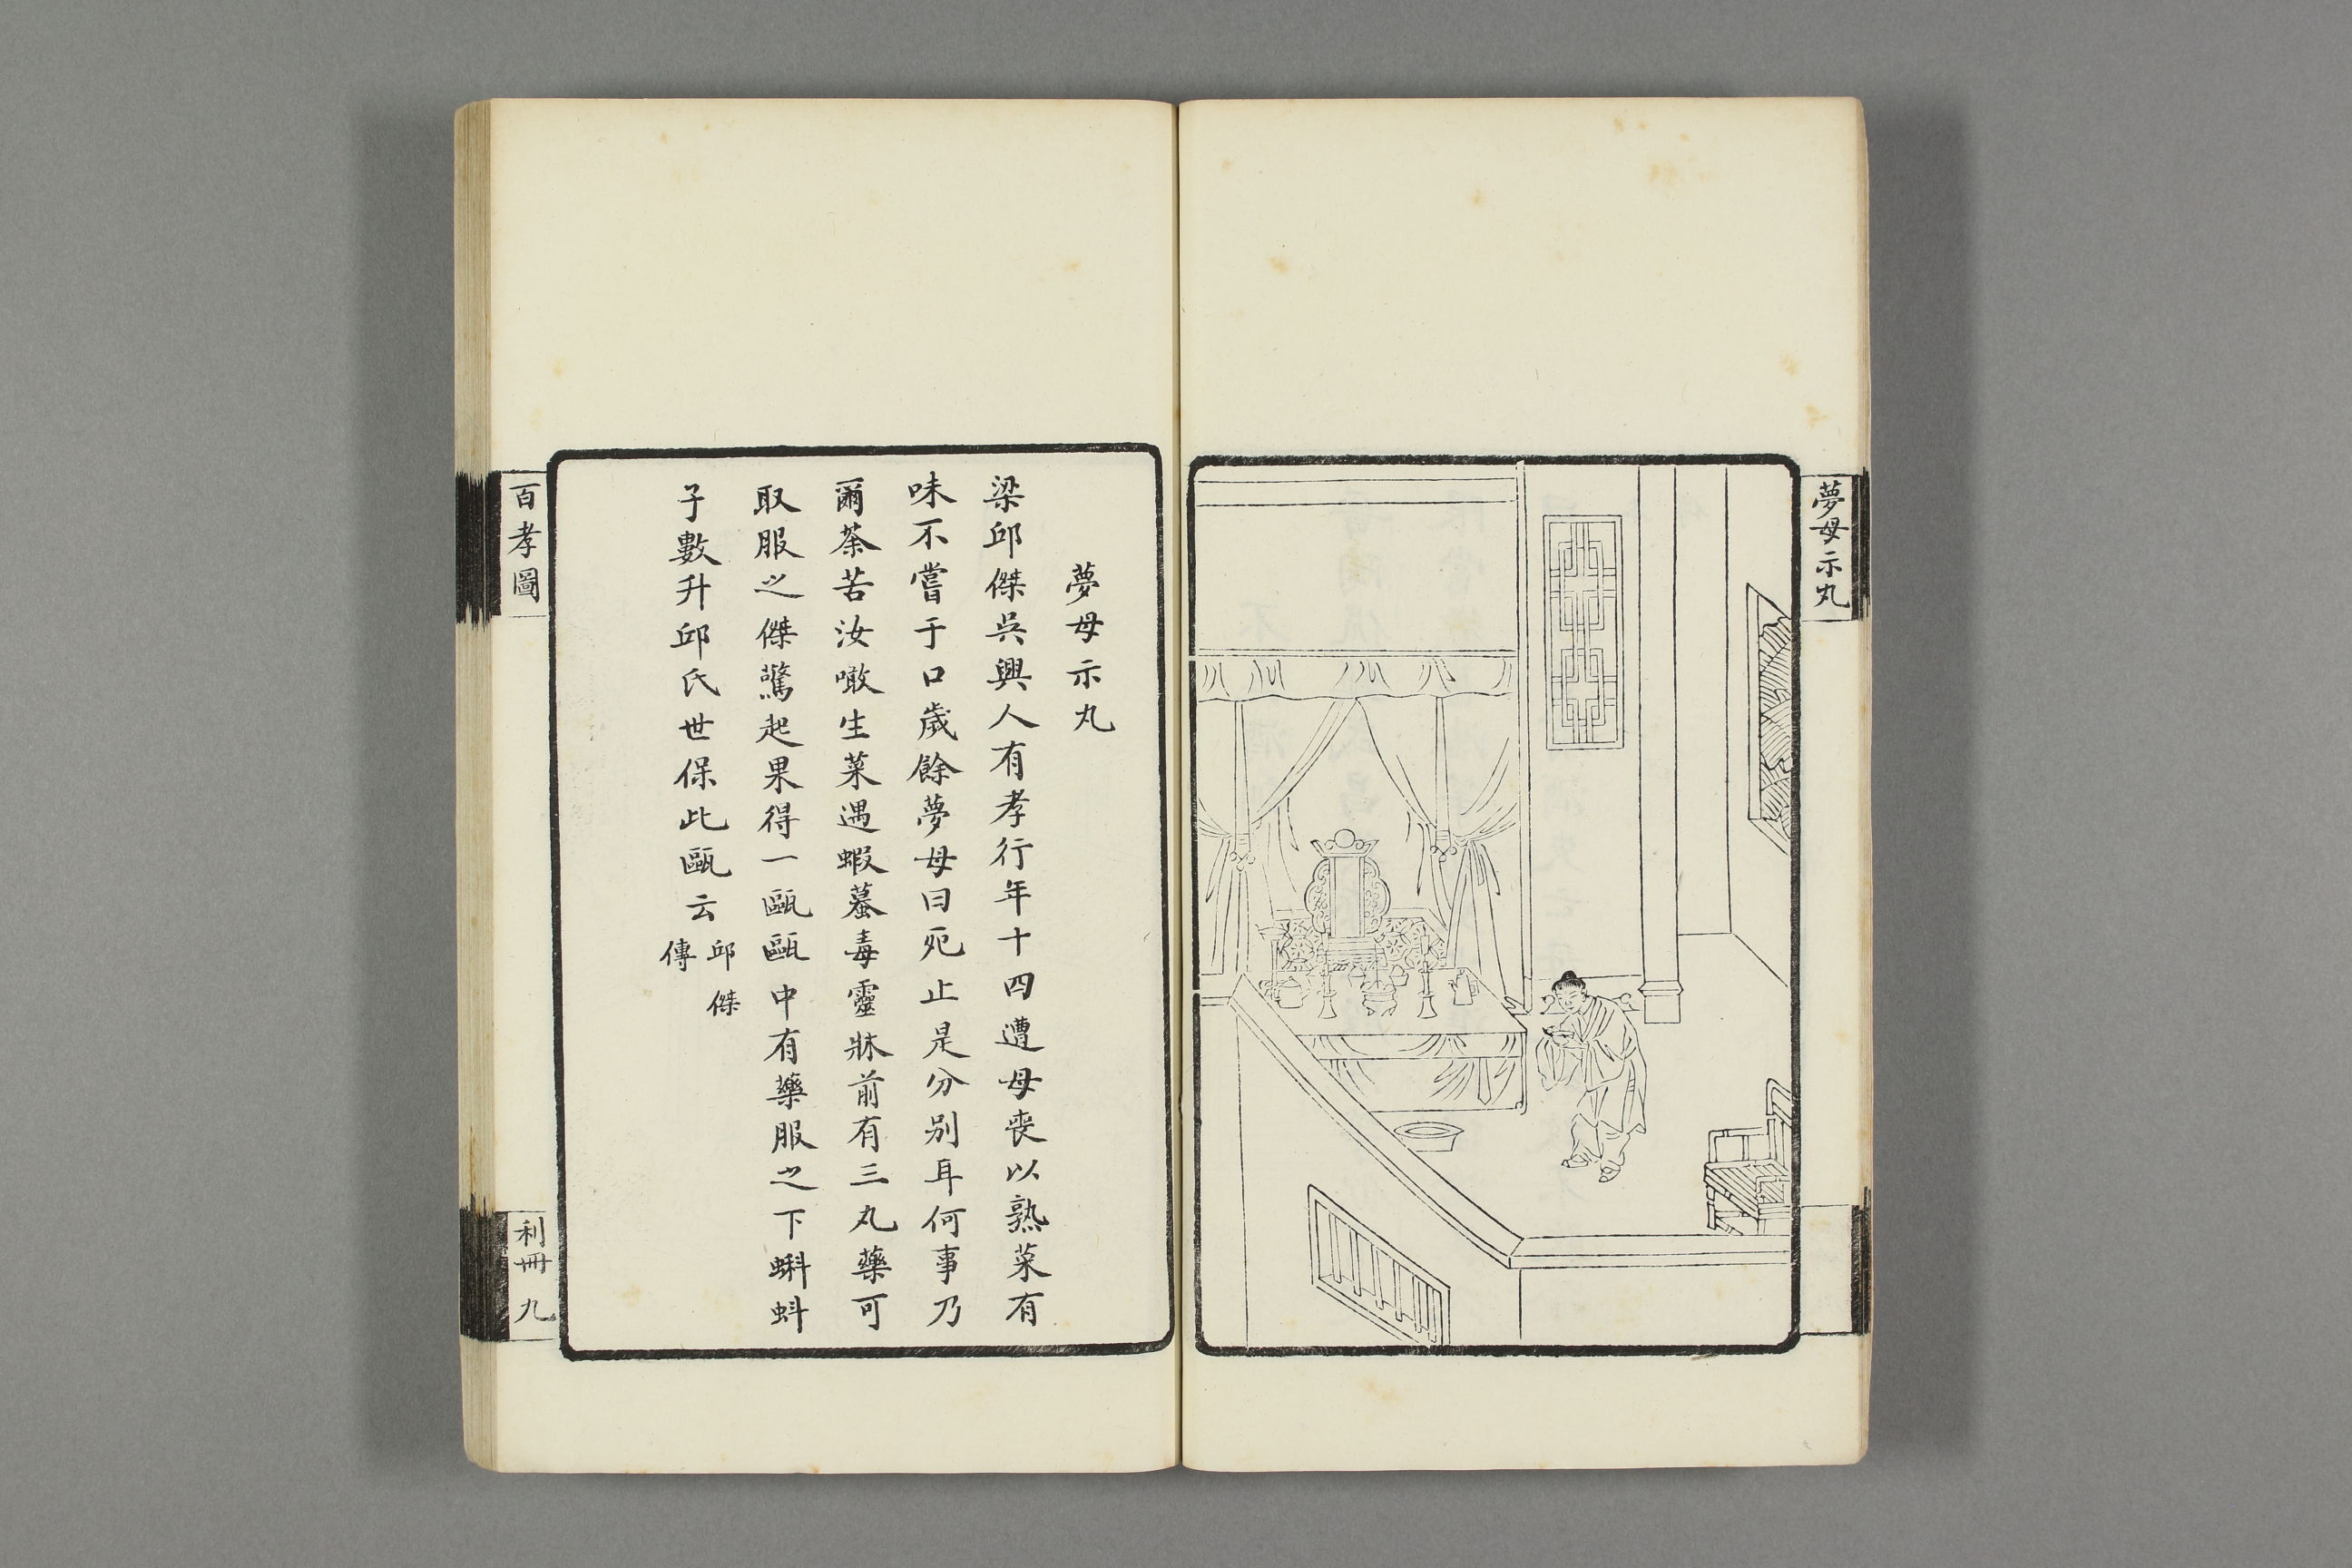 夢母示丸
夢母示丸
梁邱傑吳興人有孝行年十四遭母喪以熟菜有
味不嘗于口歲餘夢母曰死止是分別耳何事乃
爾荼苦汝噉生菜遇蝦蟇毒靈牀前有三丸藥可
取服之傑驚起果得一甌甌中有藥服之下蝌蚪
子數升邱氏世保此甌云
邱傑
傳
百孝圖
利冊 九